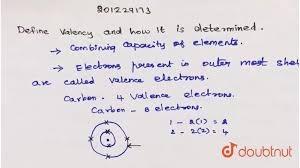 201229173
Define Valency and how It is determined.
→ Combining capacity of elements.
→ Electrons present in outer most shell
are called Valence electrons.
Carbon - 4 Valence electrons.
Carbon - 6 electrons.
1 - 2(1) = 2
2 - 2(2) = 4
doubtnut